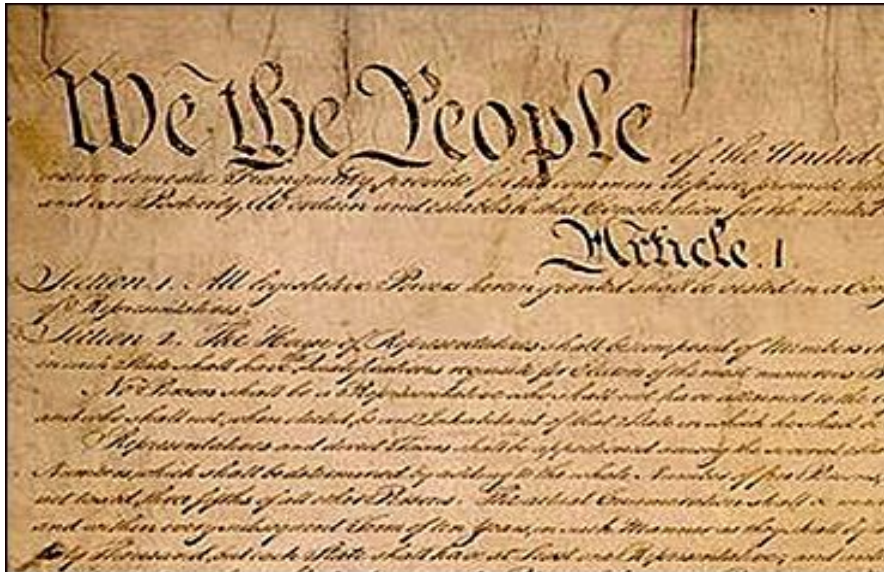 We the People of the United
insure domestic Tranquility, provide for the common defence, promote the
and our Posterity, do ordain and establish this Constitution for the United
Article. I
Section. 1. All legislative Powers herein granted shall be vested in a Con
of Representatives.
Section. 2. The House of Representatives shall be composed of Members
in each State shall have the Qualifications requisite for Electors of the most numerous
No Person shall be a Representative who shall not have attained to the
and who shall not, when elected, be an Inhabitant of that State in which he shall be
Representatives and direct Taxes shall be apportioned among the several
Numbers, which shall be determined by adding to the whole Number of free Persons,
not taxed, three fifths of all other Persons. The actual Enumeration shall be
and within every subsequent Term of ten Years, in such Manner as they shall by
thirty Thousand, but each State shall have at Least one Representative; and